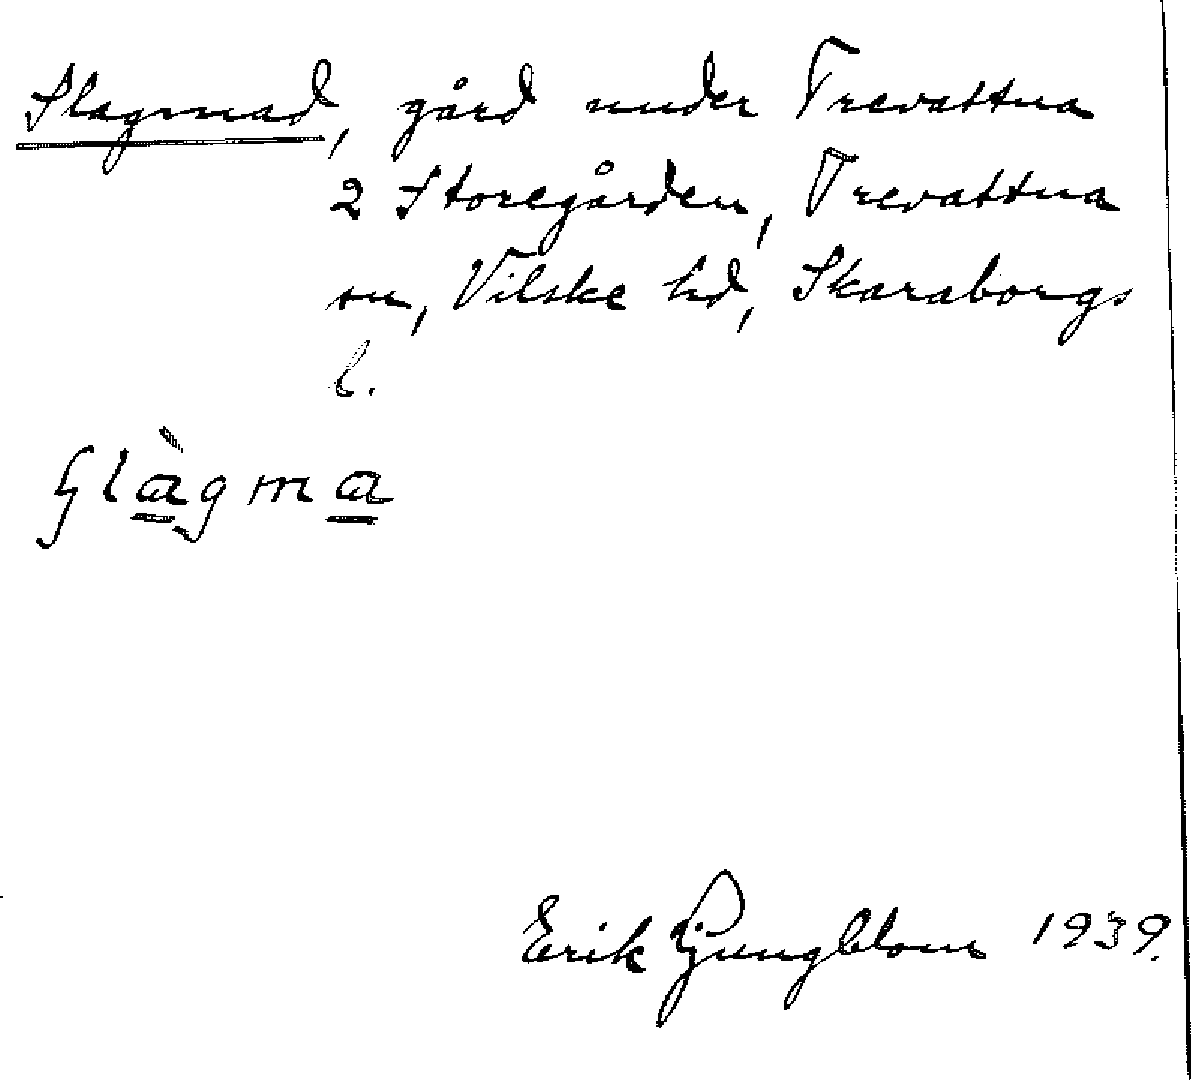 Slagmad, gård under Trevattna
2 Storegården, Trevattna
sn, Vilske hd, Skaraborgs
l.
Erik Ljungblom 1939.